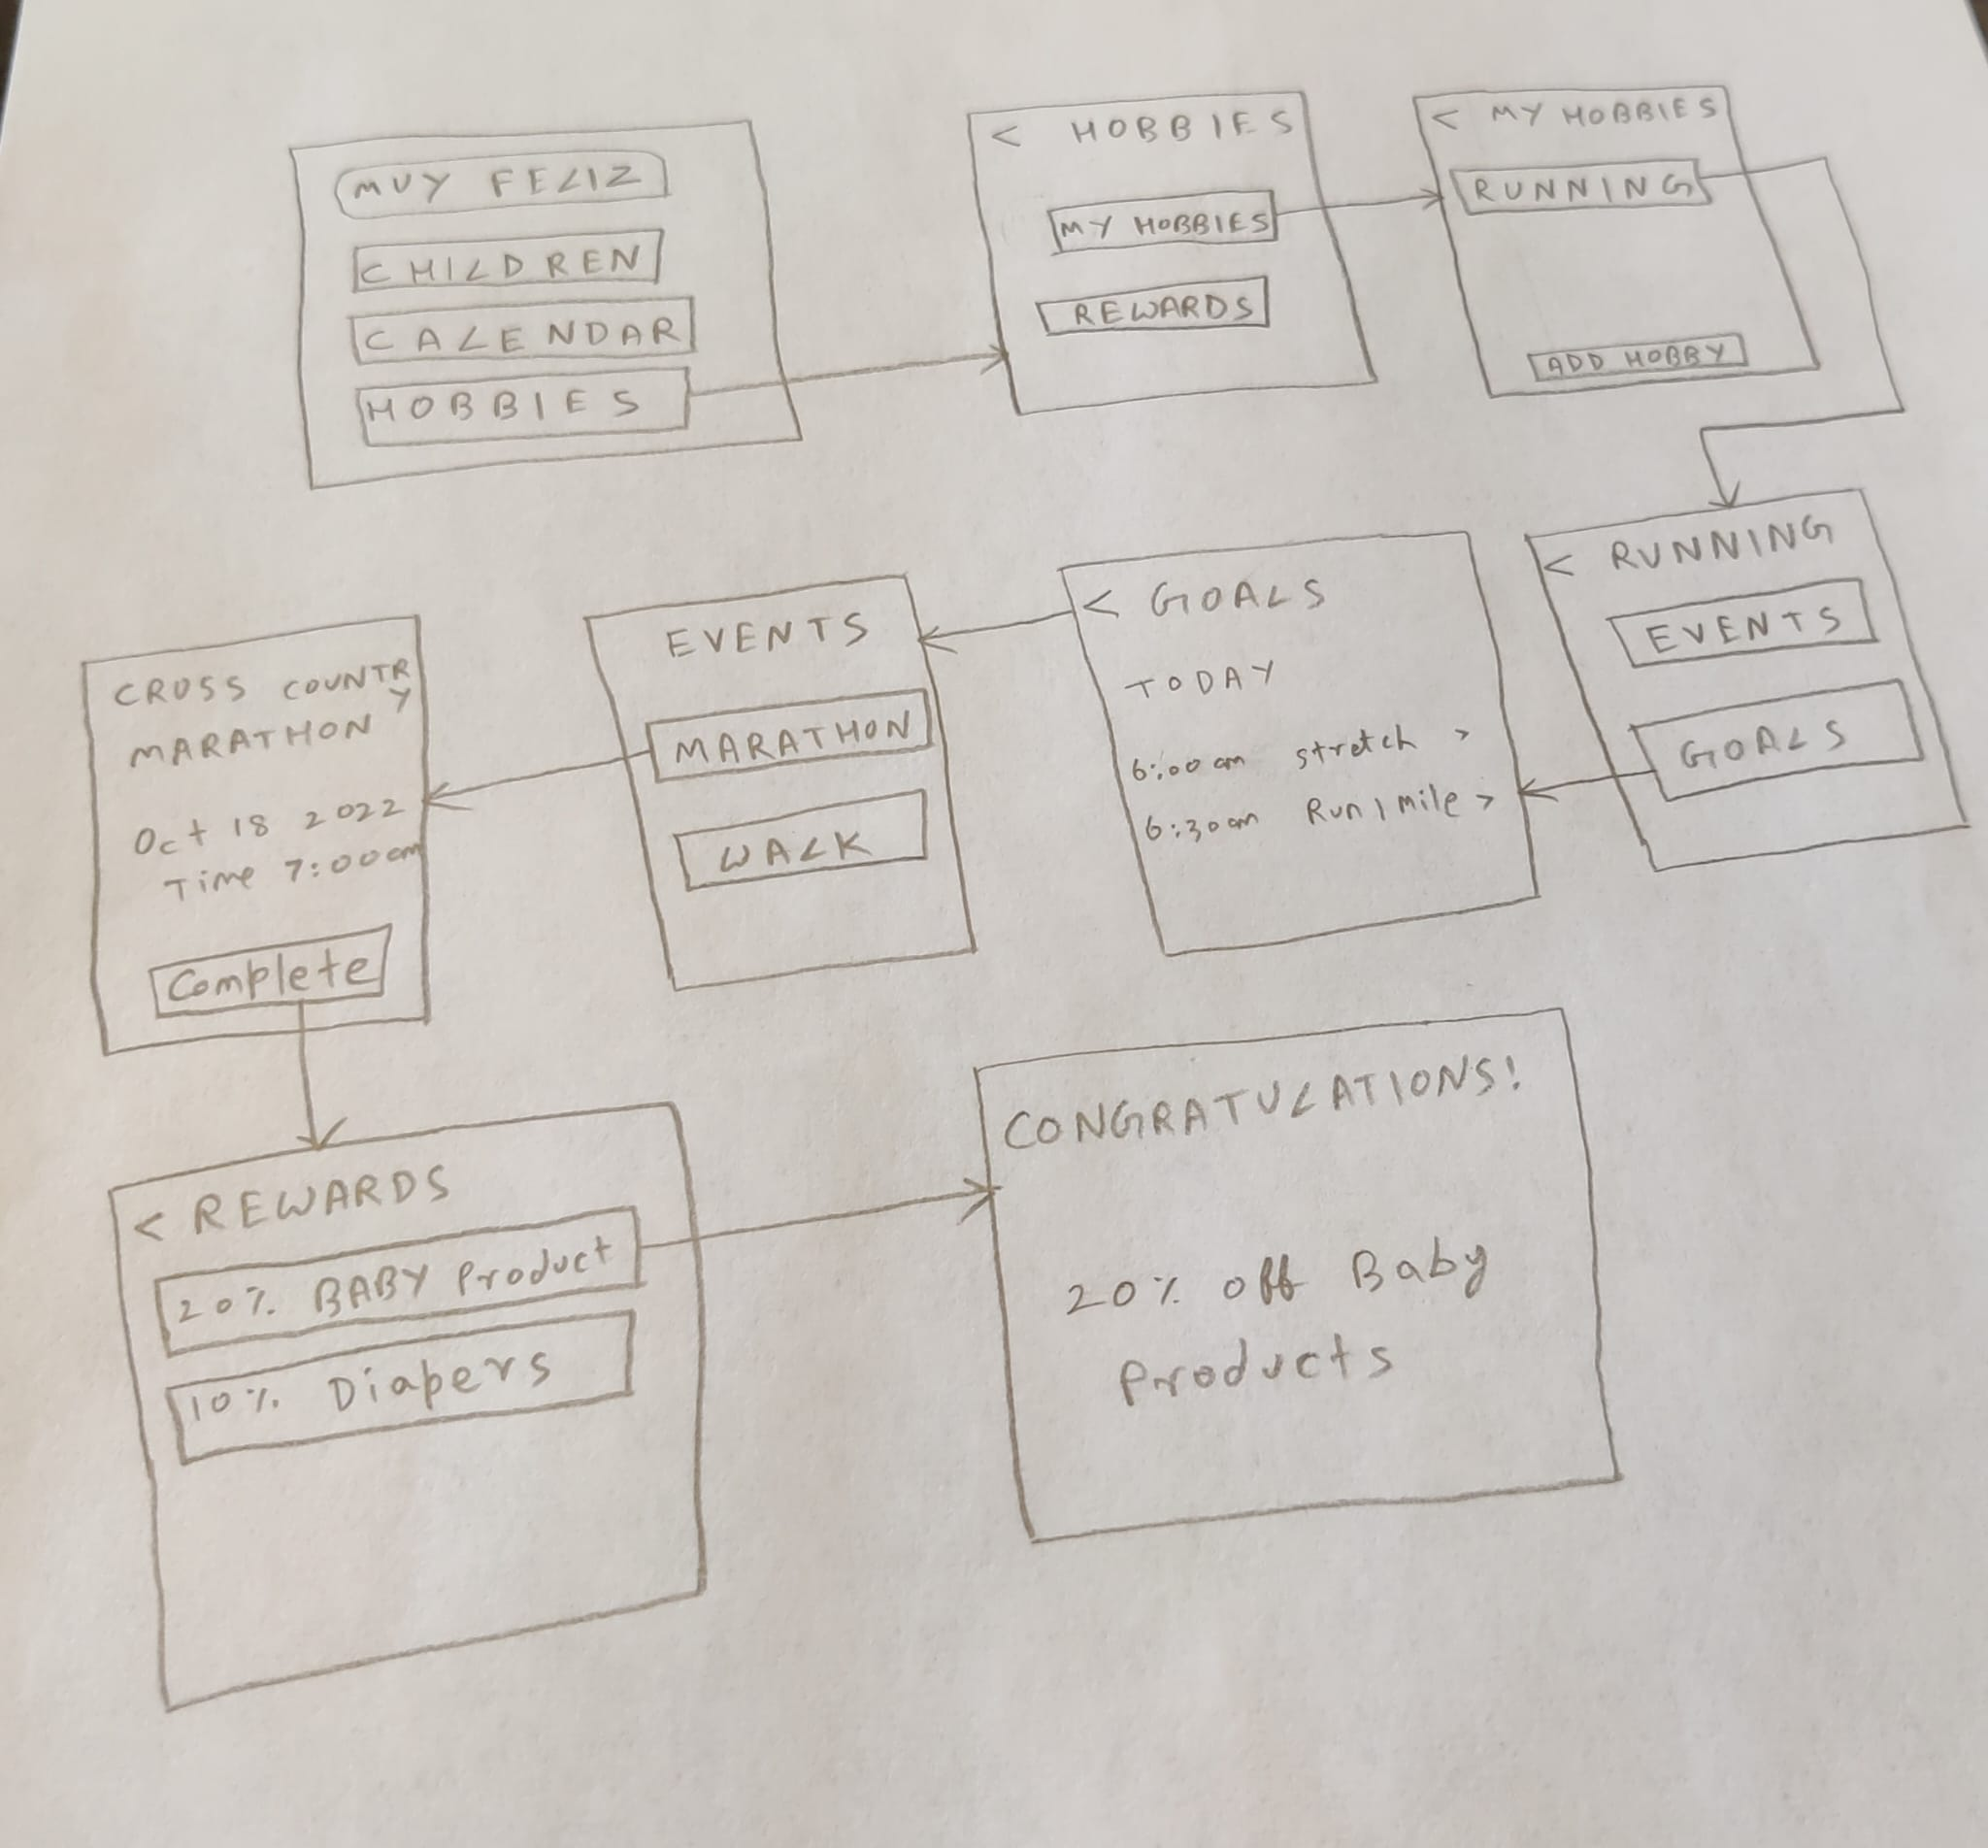 MUY FELIZ
CHILDREN
CALENDAR
HOBBIES
< HOBBIES
MY HOBBIES
REWARDS
< MY HOBBIES
RUNNING
ADD HOBBY
< RUNNING
EVENTS
GOALS
< GOALS
TODAY
6:00am stretch >
6:30am Run 1 mile >
EVENTS
MARATHON
WALK
CROSS COUNTRY
MARATHON
Oct 18 2022
Time 7:00am
Complete
< REWARDS
20% BABY Product
10% Diapers
CONGRATULATIONS!
20% off Baby
Products